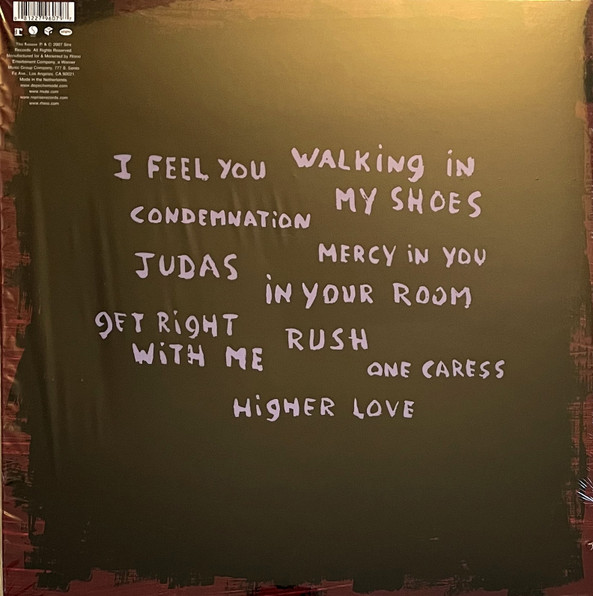 This Reissue ℗ & © 2007 Sire
Records. All Rights Reserved.
Manufactured for & Marketed by Rhino
Entertainment Company, a Warner
Music Group Company,
Fe Ave., Los Angeles, CA 90021.
Made in the Netherlands.
www.depechemode.com
www.mute.com
www.rhino.com
I FEEL YOU
WALKING IN
MY SHOES
CONDEMNATION
MERCY IN YOU
JUDAS
IN YOUR ROOM
GET RIGHT
WITH ME
RUSH
ONE CARESS
HIGHER LOVE